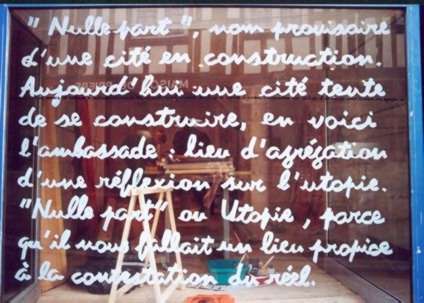 "Nulle part", nom provisoire
d'une cité en construction.
Aujourd'hui une cité tente
de se construire, en voici
l'ambassade : lieu d'agrégation
d'une réflexion sur l'utopie.
"Nulle part" ou Utopie, parce
qu'il nous fallait un lieu propice
à la contestation du réel.